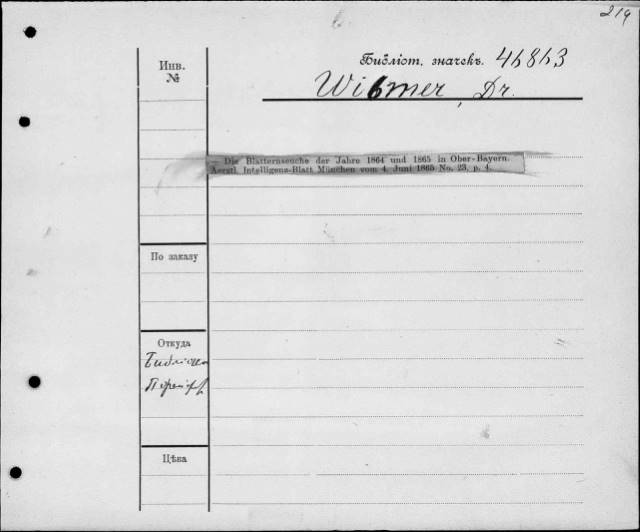 219
Библіот. значекъ. 46863
Wibmer, Dr.
Инв.
№
— Die Blatternseuche der Jahre 1864 und 1865 in Ober-Bayern.
Aerztl. Intelligenz-Blatt München vom 4. Juni 1865 No. 23, p. 4.
По заказу
Откуда
Цѣна